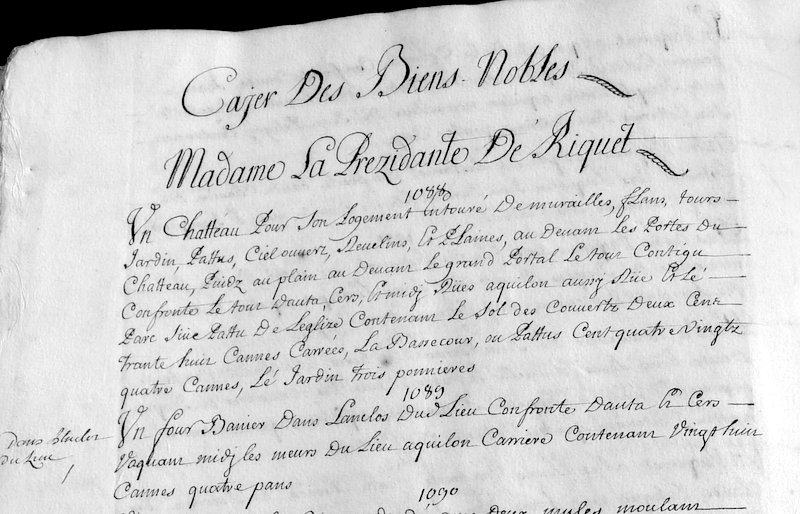 Cajer Des Biens Nobles
Madame La Prezidante De Riquet
1088
Vn Chatteau Pour Son Logement Entouré De murailles, flans, tours
Jardin, Pattus, Ciel ouvert, Revelins, Et Plaines, au Devant les Portes Du
Chatteau, Puidz au plain au Devant Le grand Portal Le tout Contigu
Confronte Le tout Dauta, Cers, Et midj Rües aquilon aussy Rüe Et Lé
Parc Sive Pattu De Leglize Contenant Le Sol des Couvertz Deux Cent
trante huit Cannes Carrées, La Bassecour, ou Pattus Cent quatre vingtz
quatre Cannes, Lé Jardin trois ponnieres
1089
Vn four Banier Dans Lanclos Dud Lieu Confronte Dauta Et Cers
Vaquant midj les meurs Du Lieu aquilon Carriere Contenant Vingt huit
Cannes quatre pans
Dans
Du Lieu
1090
Deux mules moulant